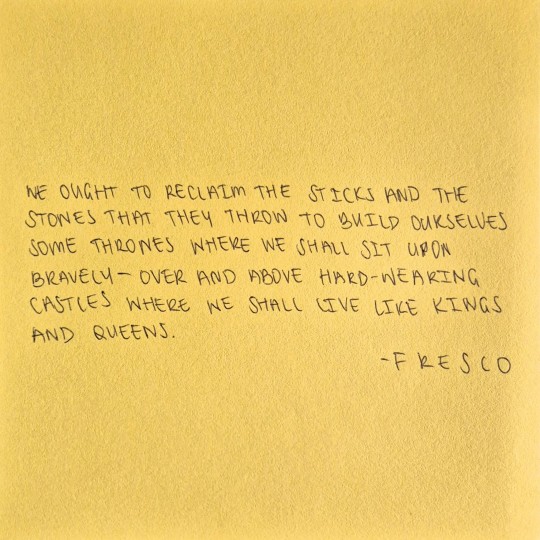 WE OUGHT TO RECLAIM THE STICKS AND THE
STONES THAT THEY THROW TO BUILD OURSELVES
SOME THRONES WHERE WE SHALL SIT UPON
BRAVELY– OVER AND ABOVE HARD-WEARING
CASTLES WHERE WE SHALL LIVE LIKE KINGS
AND QUEENS.
-FRESCO